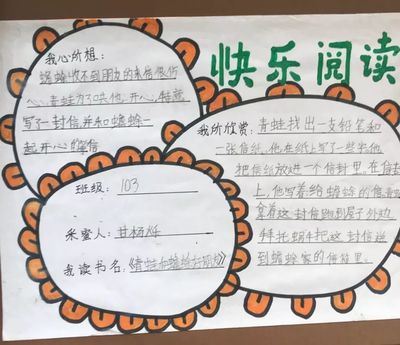 快乐阅读
我心所想：
蟾蜍收不到朋友的来信很伤
心，青蛙为了哄他开心，特意
写了一封信，并和蟾蜍一
起开心的等信
我所欣赏：青蛙找出一支铅笔和
一张信纸，他在纸上写了一些字，他
把信纸放进一个信封里，在信封
上，他写着给蟾蜍的信，青蛙
拿着这封信跑到屋子外边，
拜托蜗牛把这封信送
到蟾蜍家的信箱里。
班级：103
采蜜人：甘杨烁
我读书名：《青蛙和蟾蜍是好朋友》